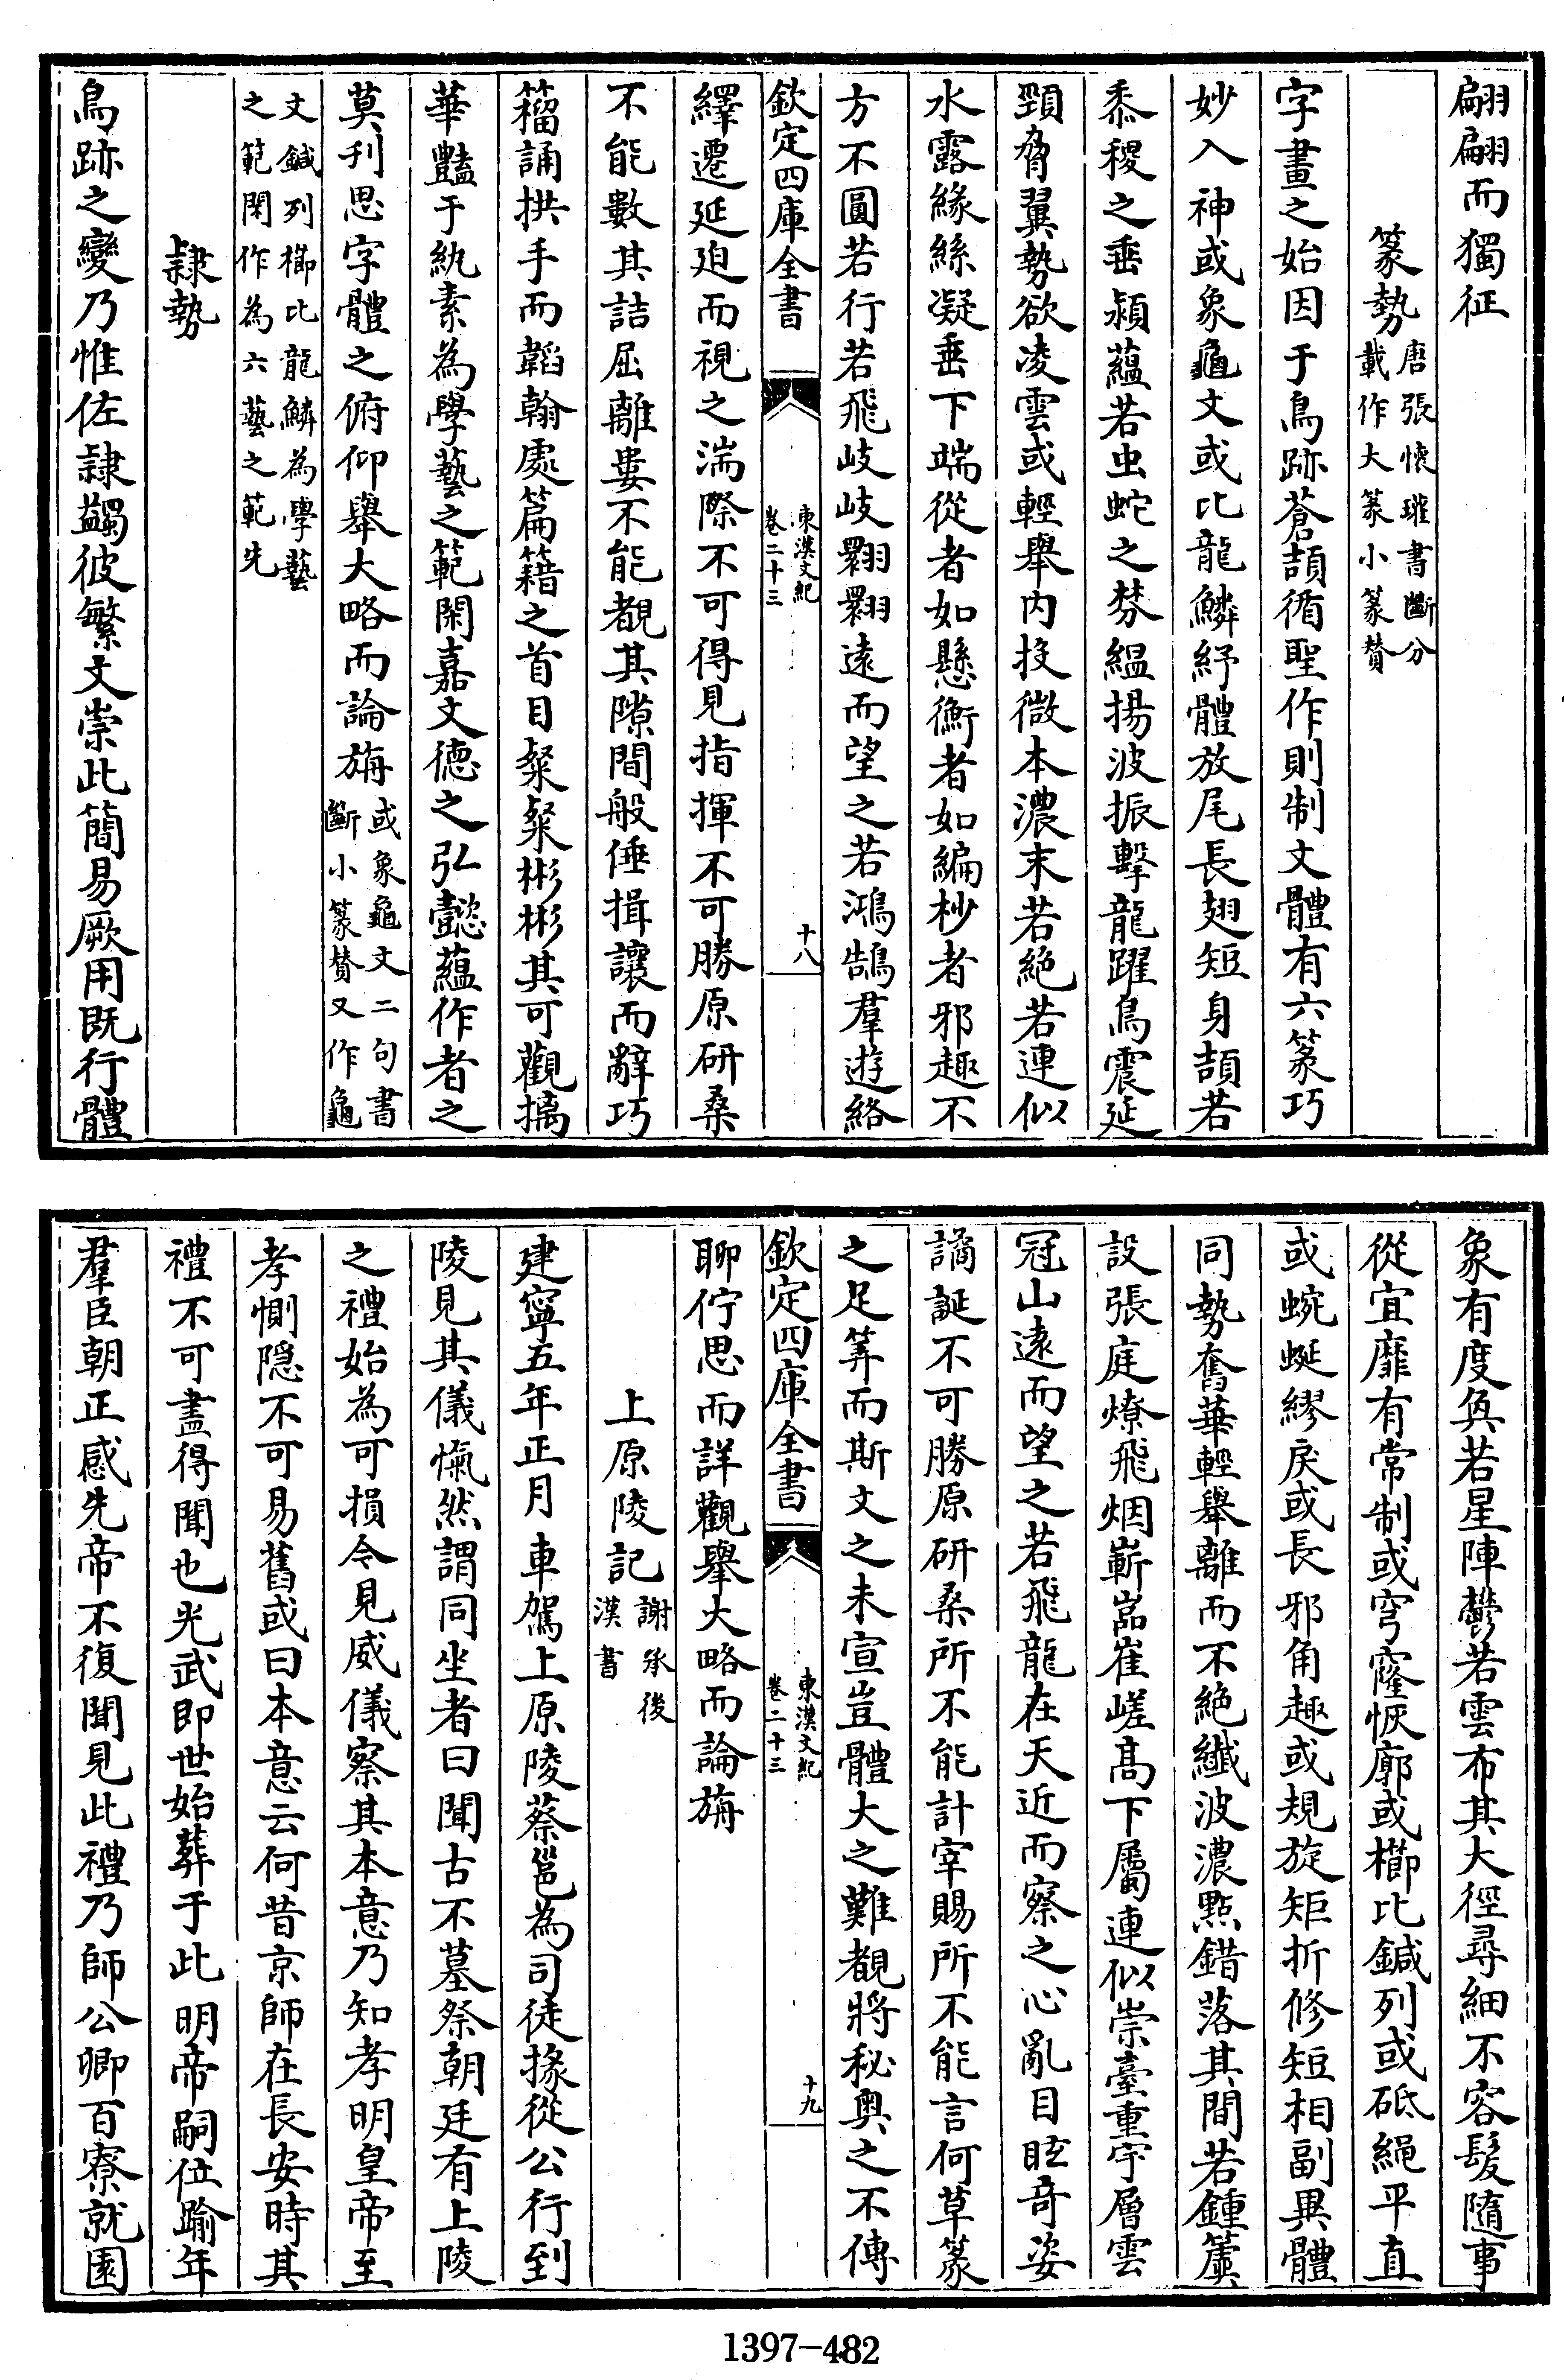 翩翩而獨征
篆勢唐張懷瓘書斷分載作大篆小篆賛
字畫之始因于鳥跡蒼頡循聖作則制文體有六篆巧
妙入神或象龜文或比龍鱗紓體放尾長翅短身頡若
黍稷之垂潁蘊若虫蛇之棼縕揚波振擊龍躍鳥震延
頸脅翼勢欲凌雲或輕舉内投微本濃末若絶若連似
水露緣絲凝垂下端從者如懸衡者如編杪者邪趣不
方不圓若行若飛岐岐翾翾遠而望之若鴻鵠羣遊絡
欽定四庫全書 東漢文紀 卷二十三 十八
繹遷延迫而視之湍際不可得見指揮不可勝原研桑
不能數其詰屈離婁不能覩其隙間般倕揖讓而辭巧
籀誦拱手而韜翰處篇籍之首目粲粲彬彬其可觀摛
華豔于紈素為學藝之範閑嘉文德之弘懿蘊作者之
莫刋思字體之俯仰舉大略而論旃或象龜文二句書斷小篆賛又作龜
文鍼列櫛比龍鱗為學藝之範閑作為六藝之範先
隷勢
鳥跡之變乃惟佐隷蠲彼繁文崇此簡易厥用既行體
象有度奐若星陣鬱若雲布其大徑尋細不容髮隨事
從宜靡有常制或穹窿恢廓或櫛比鍼列或砥繩平直
或蜿蜒繆戾或長邪角趣或規旋矩折修短相副異體
同勢奮華輕舉離而不絶纖波濃㸃錯落其間若鍾簴
設張庭燎飛烟嶄嵓崔嵯髙下屬連似崇臺重宇層雲
冠山遠而望之若飛龍在天近而察之心亂目眩奇姿
譎誕不可勝原研桑所不能計宰賜所不能言何草篆
之足筭而斯文之未宣豈體大之難覩將秘奥之不傳
欽定四庫全書 東漢文紀 卷二十三 十九
聊佇思而詳觀舉大略而論旃
上原陵記謝承後漢書
建寧五年正月車駕上原陵蔡邕為司徒掾從公行到
陵見其儀愾然謂同坐者曰聞古不墓祭朝廷有上陵
之禮始為可損今見威儀察其本意乃知孝明皇帝至
孝惻隠不可易舊或曰本意云何昔京師在長安時其
禮不可盡得聞也光武即世始葬于此明帝嗣位踰年
羣臣朝正感先帝不復聞見此禮乃師公卿百寮就園
1397-482